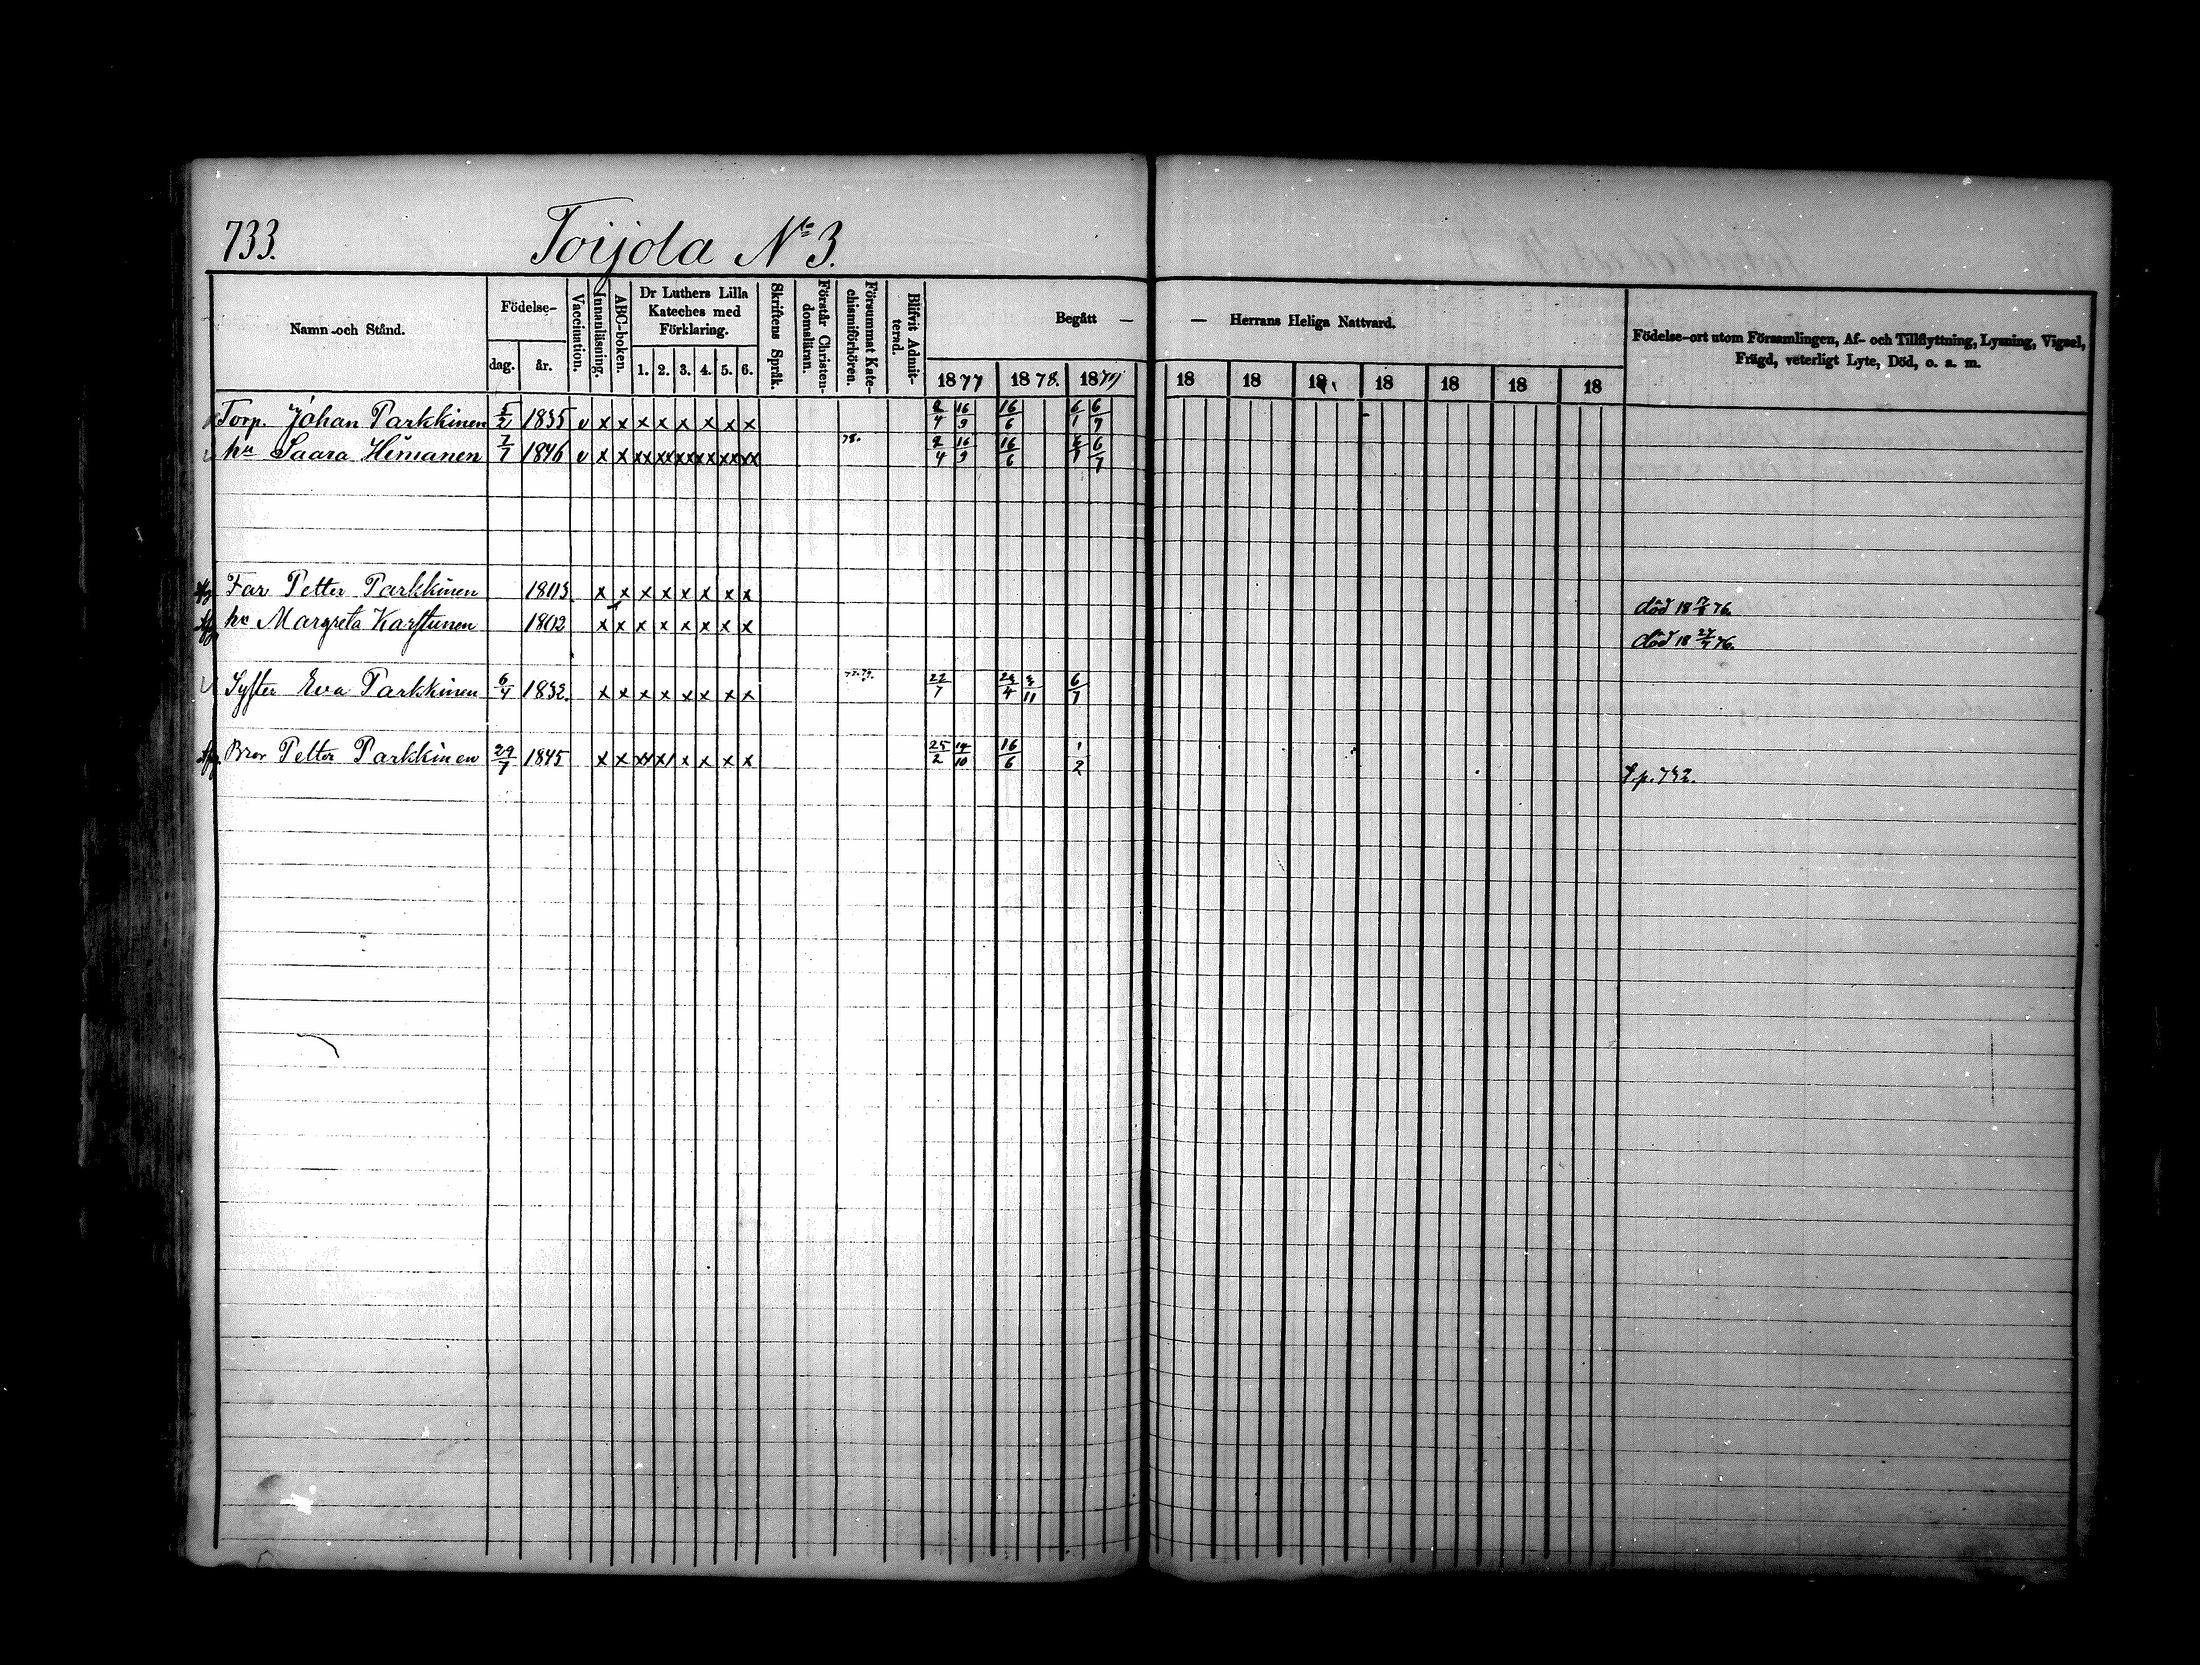 733.
Toijola No 3.
Namn och Stånd.
Födelse-
dag.
år.
Vaccination.
Innanläsning.
ABC-boken.
Dr Luthers Lilla
Kateches med
Förklaring.
1. 2. 3. 4. 5. 6.
Skriftens Språk.
Förstår Christen-
domsläran.
Försummat Kate-
chismiförhören.
Blifvit Admit-
terad.
Begått — — Herrans Heliga Nattvard.
1877 1878. 1879 18 18 18 18 18 18 18
Födelse-ort utom Församlingen, Af- och Tillflyttning, Lysning, Vigsel,
Frägd, veterligt Lyte, Död, o. s. m.
Torp. Johan Parkkinen 5/2 1835 v x x x x x x x x 2/4 16/9 16/6 6/1 6/7
hu Saara Himanen 7/7 1846 v x x xx xx xx xx xx xx 78. 2/4 16/9 16/6 6/7
Far Petter Parkkinen 1803 x x x x x x x x död 18 76.
hu Margreta Karstunen 1802 x x x x x x x x död 18 27/7 76.
Syster Eva Parkkinen 6/4 1832. x x x x x x x x 22/7 24/4 3/11 6/7
Bror Petter Parkkinen 29/7 1845 x x xx x x x x x 25/2 14/10 16/6 1/2 S.p. 732.